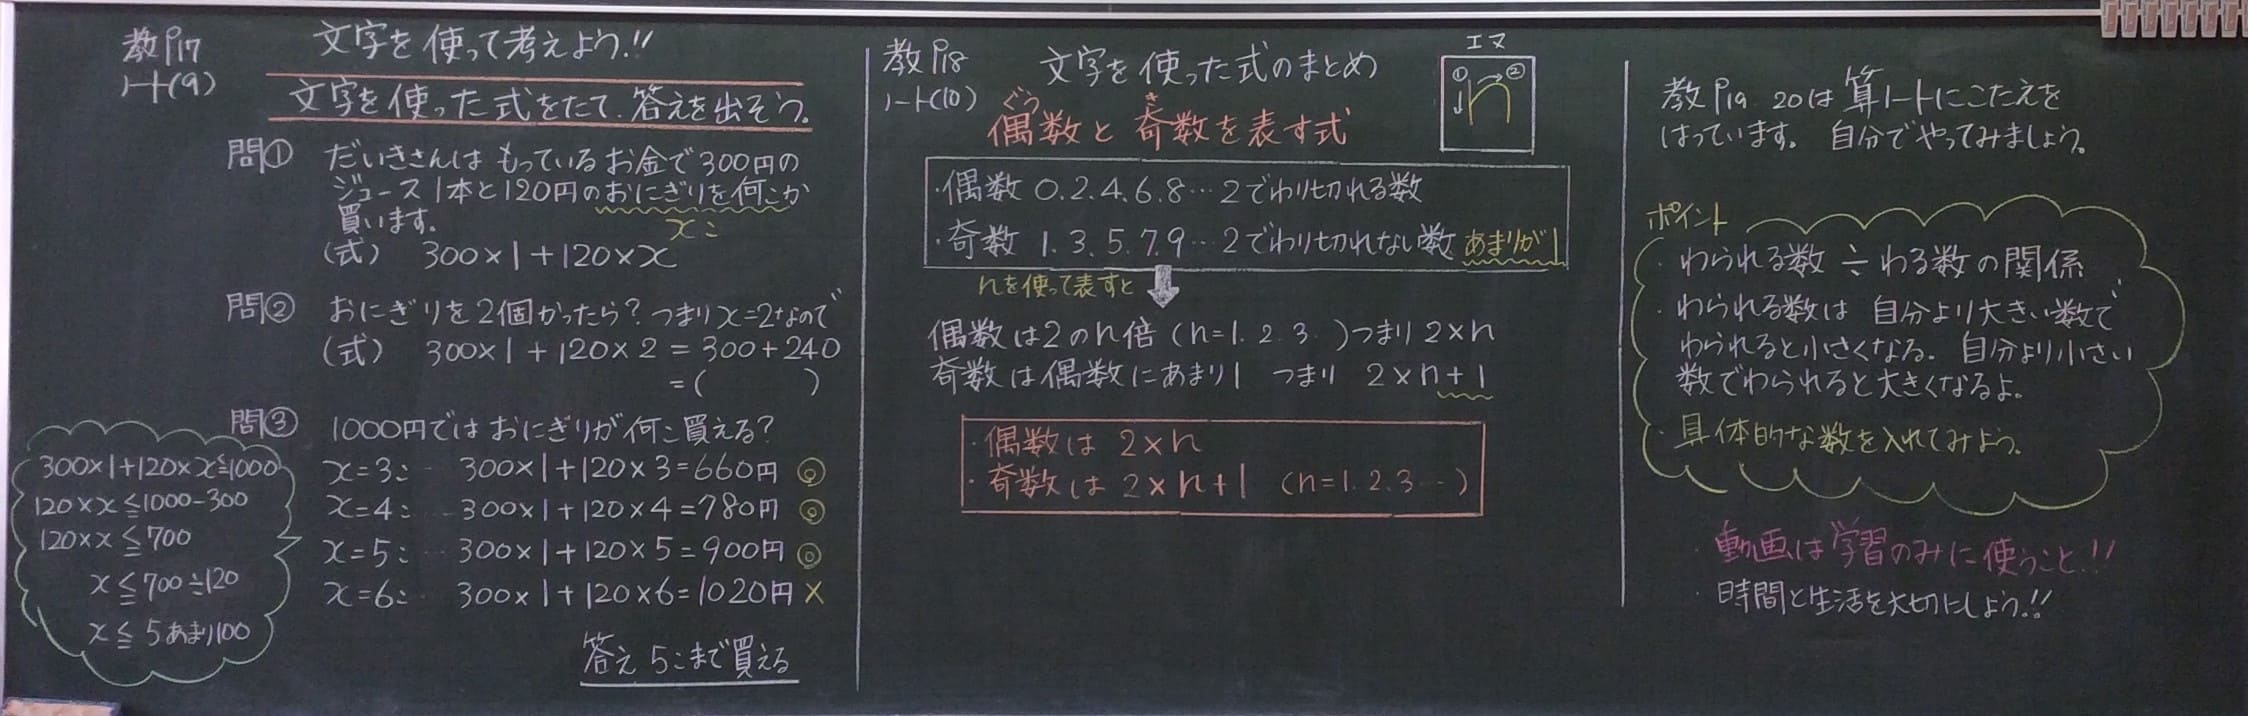 教P17
ノート(9)
文字を使って考えよう!!
文字を使った式をたて、答えを出そう。
問① だいきさんは もっているお金で300円の
ジュース1本と120円のおにぎりを何こか
買います。
xこ
(式) 300×1+120×x
問② おにぎりを2個かったら？つまりx=2なので
(式) 300×1+120×2=300+240
=( )
問③ 1000円ではおにぎりが何こ買える？
x=3こ… 300×1+120×3=660円 ◎
x=4こ… 300×1+120×4=780円 ◎
x=5こ… 300×1+120×5=900円 ◎
x=6こ… 300×1+120×6=1020円 ×
答え 5こまで買える
300×1+120×x≦1000
120×x≦1000-300
120×x≦700
x≦700÷120
x≦5あまり100
教P18
ノート(10)
文字を使った式のまとめ
ぐう き
偶数と奇数を表す式
エヌ
① ②
n
・偶数 0.2.4.6.8… 2でわり切れる数
・奇数 1.3.5.7.9… 2でわり切れない数 あまりが1
nを使って表すと
偶数は2のn倍(n=1.2.3.)つまり 2×n
奇数は偶数にあまり1 つまり 2×n+1
・偶数は 2×n
・奇数は 2×n+1 (n=1.2.3…)
教P19 20は算ノートにこたえを
はっています。自分でやってみましょう。
ポイント
・わられる数÷わる数の関係
・わられる数は 自分より大きい数で
わられると小さくなる。自分より小さい
数でわられると大きくなるよ。
・具体的な数を入れてみよう。
・動画は学習のみに使うこと!!
・時間と生活を大切にしよう!!